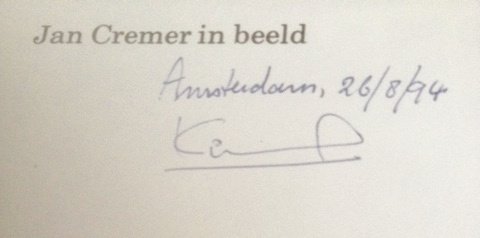 Jan Cremer in beeld
Amsterdam, 26/8/94